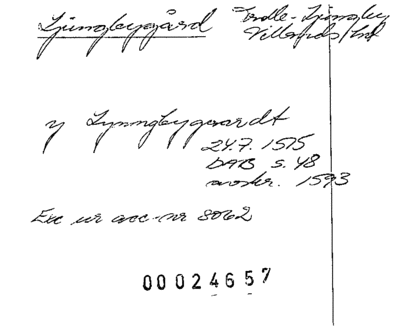 Ljungbygård
Trolle-Ljungby
Villands hd
y Lynngbygaardt
24.7. 1515
DAB s. 48
avskr. 1593
Exc ur acc-nr 8062
00024657